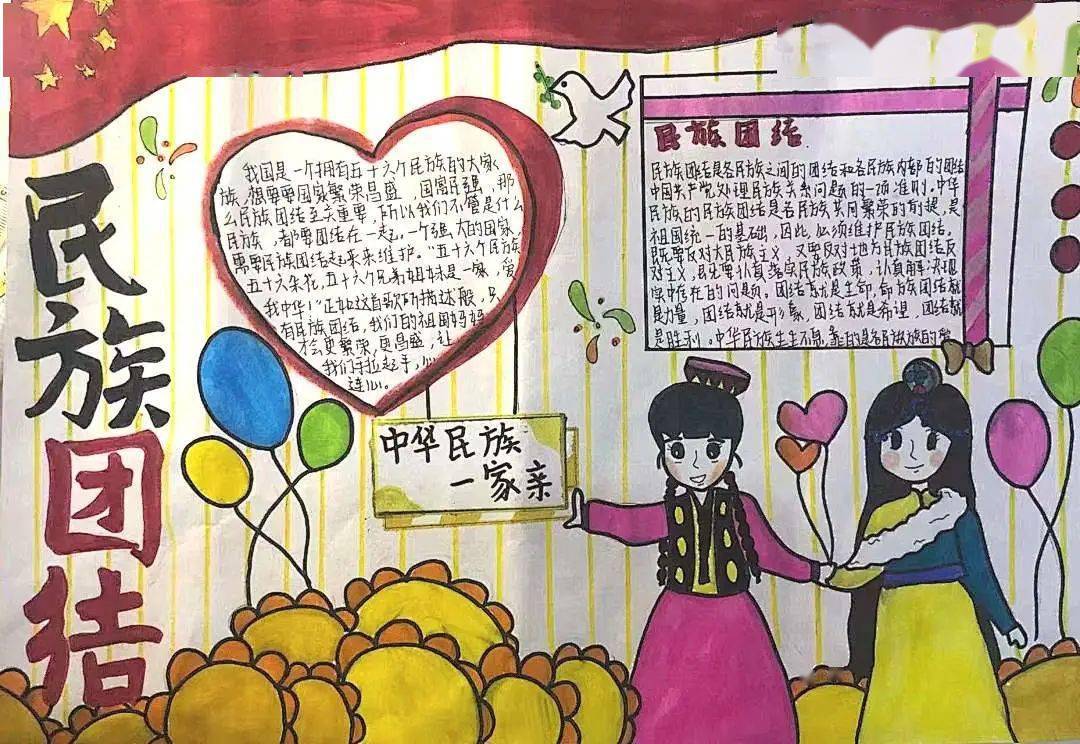 民族团结
我国是一个拥有五十六个民族的大家
族,想要要国家繁荣昌盛,国富民强,那
么民族团结至关重要,所以我们不管是什么
民族,都要团结在一起。一个强大的国家,
需要民族团结起来来维护。"五十六个民族
五十六朵花,五十六个兄弟姐妹是一家,爱
我中华!"正如这首歌所描述般,只
有民族团结,我们的祖国妈妈
才会更繁荣,更昌盛,让
我们手拉起手,心
连心。
中华民族
一家亲
民族团结
民族团结是各民族之间的团结和各民族内部的团结
中国共产党处理民族关系问题的一项准则。中华
民族的民族团结是各民族共同繁荣的前提,是
祖国统一的基础,因此,必须维护民族团结。
既要反对大民族主义,又要反对地方民族团结反
对主义,
团结就是生命,
是力量,团结就是形象,团结就是希望,团结就
是胜利。中华民族生生不息,靠的是各民族